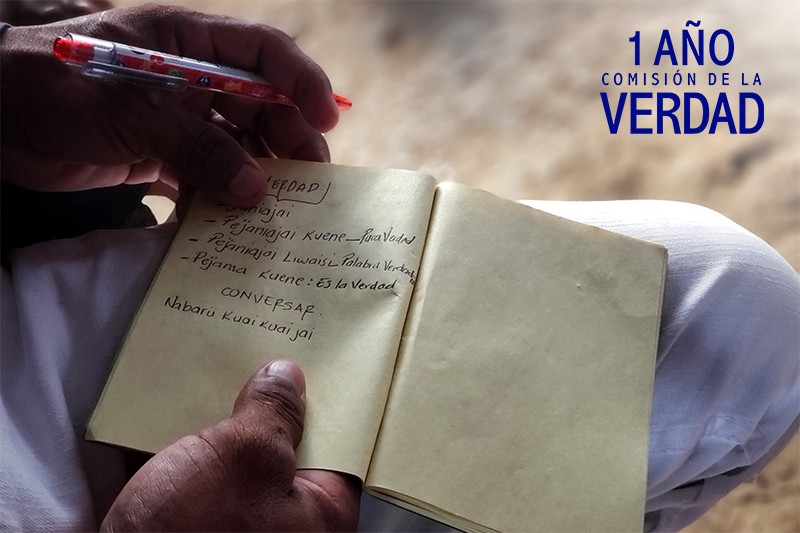 1 AÑO
COMISIÓN DE LA
VERDAD
VERDAD
- Pejaniajai Kuene - Pura Verdad
- Pejaniajai Liwaisi Palabra
- Pejama Kuene: Es la Verdad
CONVERSAR.
Nabarü Kuai Kuai jai